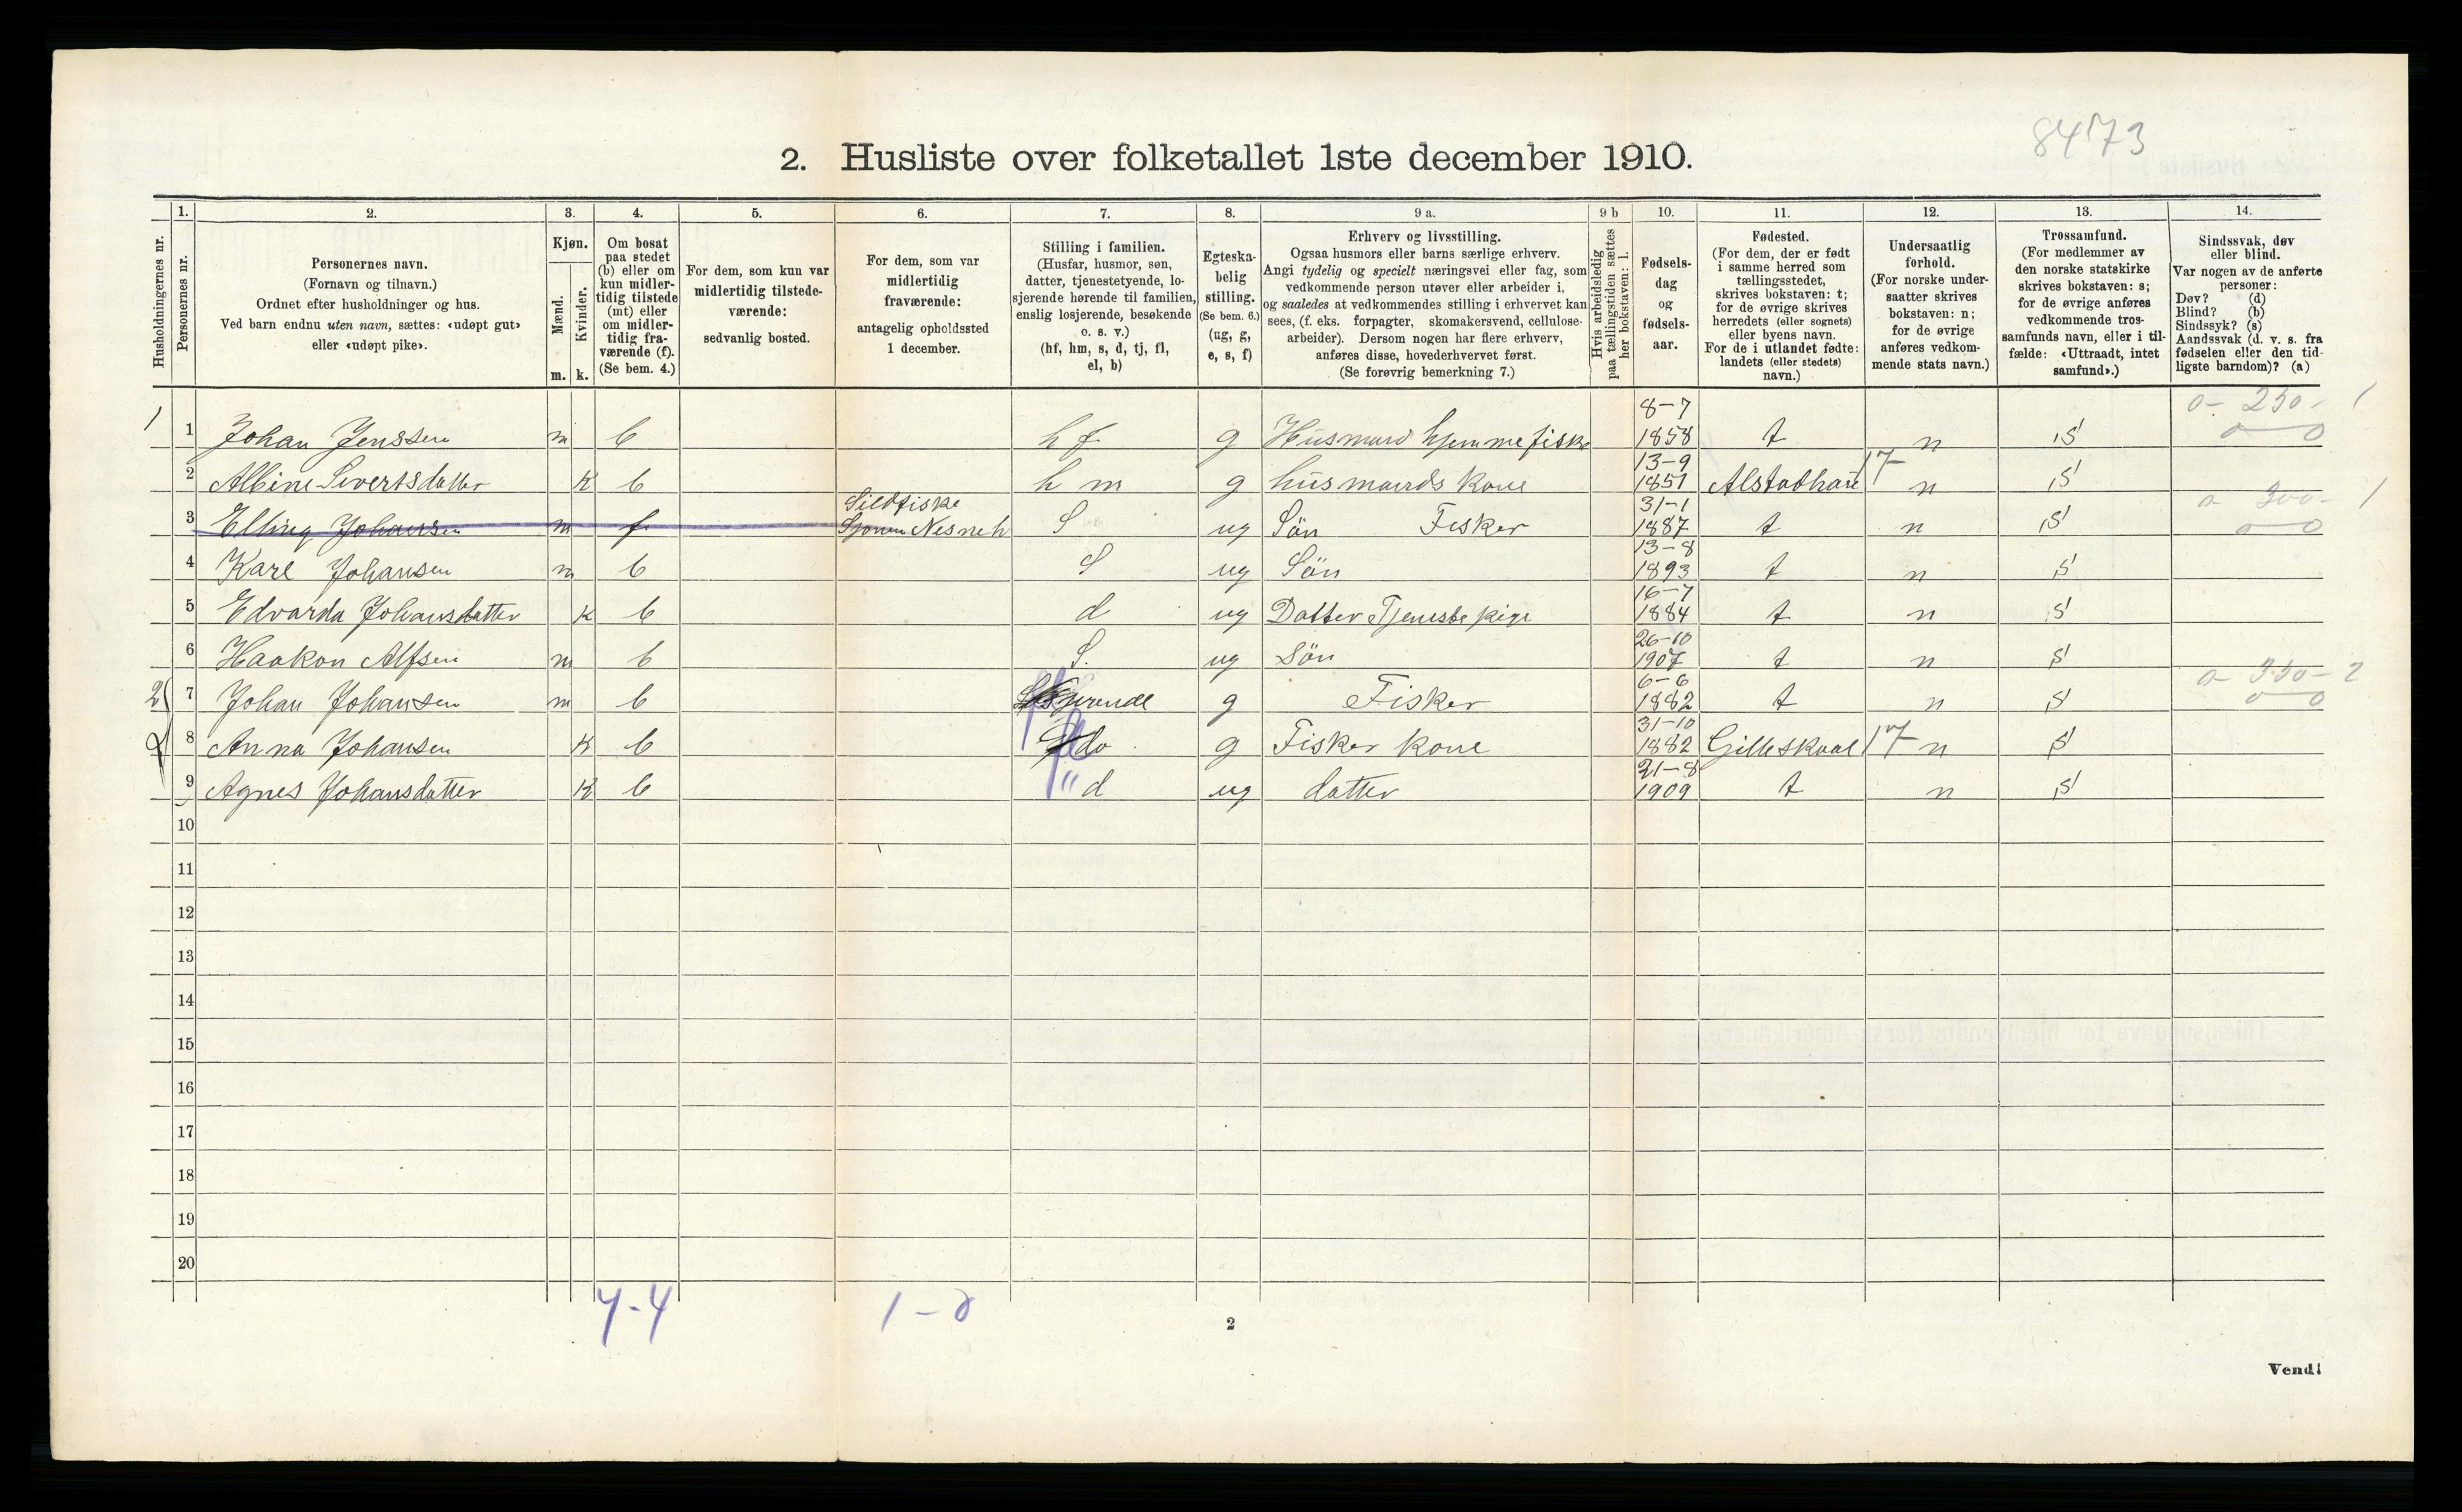 8473
2. Husliste over folketallet 1ste december 1910.
Husholdningernes nr.
1.
Personernes nr.
2.
Personernes navn.
(Fornavn og tilnavn.)
Ordnet efter husholdninger og hus.
Ved barn endnu uten navn, sættes: «udøpt gut»
eller «udøpt pike».
3.
Kjøn.
Mænd.
Kvinder.
m. k.
4.
Om bosat
paa stedet
(b) eller om
kun midler-
tidig tilstede
(mt) eller
om midler-
tidig fra-
værende (f).
(Se bem. 4.)
5.
For dem, som kun var
midlertidig tilstede-
værende:
sedvanlig bosted.
6.
For dem, som var
midlertidig
fraværende:
antagelig opholdssted
1 december.
7.
Stilling i familien.
(Husfar, husmor, søn,
datter, tjenestetyende, lo-
sjerende hørende til familien,
enslig losjerende, besøkende
o. s. v.)
(hf, hm, s, d, tj, fl,
el, b)
8.
Egteska-
belig
stilling.
(Se bem. 6.)
(ug, g,
e, s, f)
9 a.
Erhverv og livsstilling.
Ogsaa husmors eller barns særlige erhverv.
Angi tydelig og specielt næringsvei eller fag, som
vedkommende person utøver eller arbeider i,
og saaledes at vedkommendes stilling i erhvervet kan
sees, (f. eks. forpagter, skomakersvend, cellulose-
arbeider). Dersom nogen har flere erhverv,
anføres disse, hovederhvervet først.
(Se forøvrig bemerkning 7.)
9 b
Hvis arbeidsledig
paa tællingstiden sættes
her bokstaven: l.
10.
Fødsels-
dag
og
fødsels-
aar.
11.
Fødested.
(For dem, der er født
i samme herred som
tællingsstedet,
skrives bokstaven: t;
for de øvrige skrives
herredets (eller sognets)
eller byens navn.
For de i utlandet fødte:
landets (eller stedets)
navn.)
12.
Undersaatlig
forhold.
(For norske under-
saatter skrives
bokstaven: n;
for de øvrige
anføres vedkom-
mende stats navn.)
13.
Trossamfund.
(For medlemmer av
den norske statskirke
skrives bokstaven: s;
for de øvrige anføres
vedkommende tros-
samfunds navn, eller i til-
fælde: «Uttraadt, intet
samfund».)
14.
Sindssvak, døv
eller blind.
Var nogen av de anførte
personer:
Døv? (d)
Blind? (b)
Sindssyk? (s)
Aandssvak (d. v. s. fra
fødselen eller den tid-
ligste barndom)? (a)
1 1 Johan Jenssen m b hf g Husmand hjemmefisker 8-7 1858 t n S 0-250-1 0 0
2 Albine Sivertsdatter K b hm g husmands Kone 13-9 1851 Alstadhaug 17 n S
3 Elling Johansen m f Sildfiske Nesneh S ug Sön Fisker 31-1 1887 t n S 0 300-1 0 0
4 Karl Johansen m b S ug Sön 13-8 1893 t n S
5 Edvarda Johansdatter K b d ug Datter Tjenestepige 16-7 1884 t n S
6 Haakon Alfsen m b S. ug Sön 26-10 1907 t n S
2 7 Johan Johansen m b g Fisker 6-6 1882 t n S 0-350-2 0 0
8 Anna Johansen K b do g Fisker Kone 31-10 1882 Gilleskaal 17 n S
9 Agnes Johansdatter K b " d ug datter 21-8 1909 t n S
10
11
12
13
14
15
16
17
18
19
20
4-4 1-0
2
Vend!